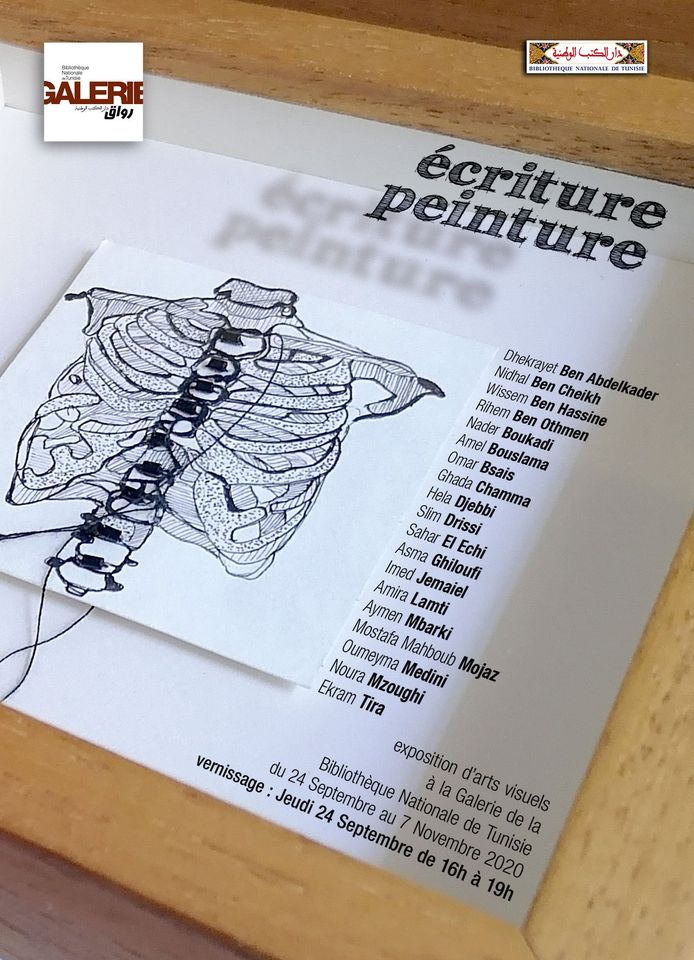 Bibliothèque
Nationale
de Tunisie
GALERIE
دار الكتب الوطنية
رواق
دار الكتب الوطنية
BIBLIOTHEQUE NATIONALE DE TUNISIE
écriture
peinture
écriture
peinture
Dhekrayet Ben Abdelkader
Nidhal Ben Cheikh
Wissem Ben Hassine
Rihem Ben Othmen
Nader Boukadi
Amel Bouslama
Omar Bsais
Ghada Chamma
Hela Djebbi
Slim Drissi
Sahar El Echi
Asma Ghiloufi
Imed Jemaiel
Amira Lamti
Aymen Mbarki
Mostafa Mahboub Mojaz
Oumeyma Medini
Noura Mzoughi
Ekram Tira
exposition d'arts visuels
à la Galerie de la
Bibliothèque Nationale de Tunisie
du 24 Septembre au 7 Novembre 2020
vernissage : Jeudi 24 Septembre de 16h à 19h